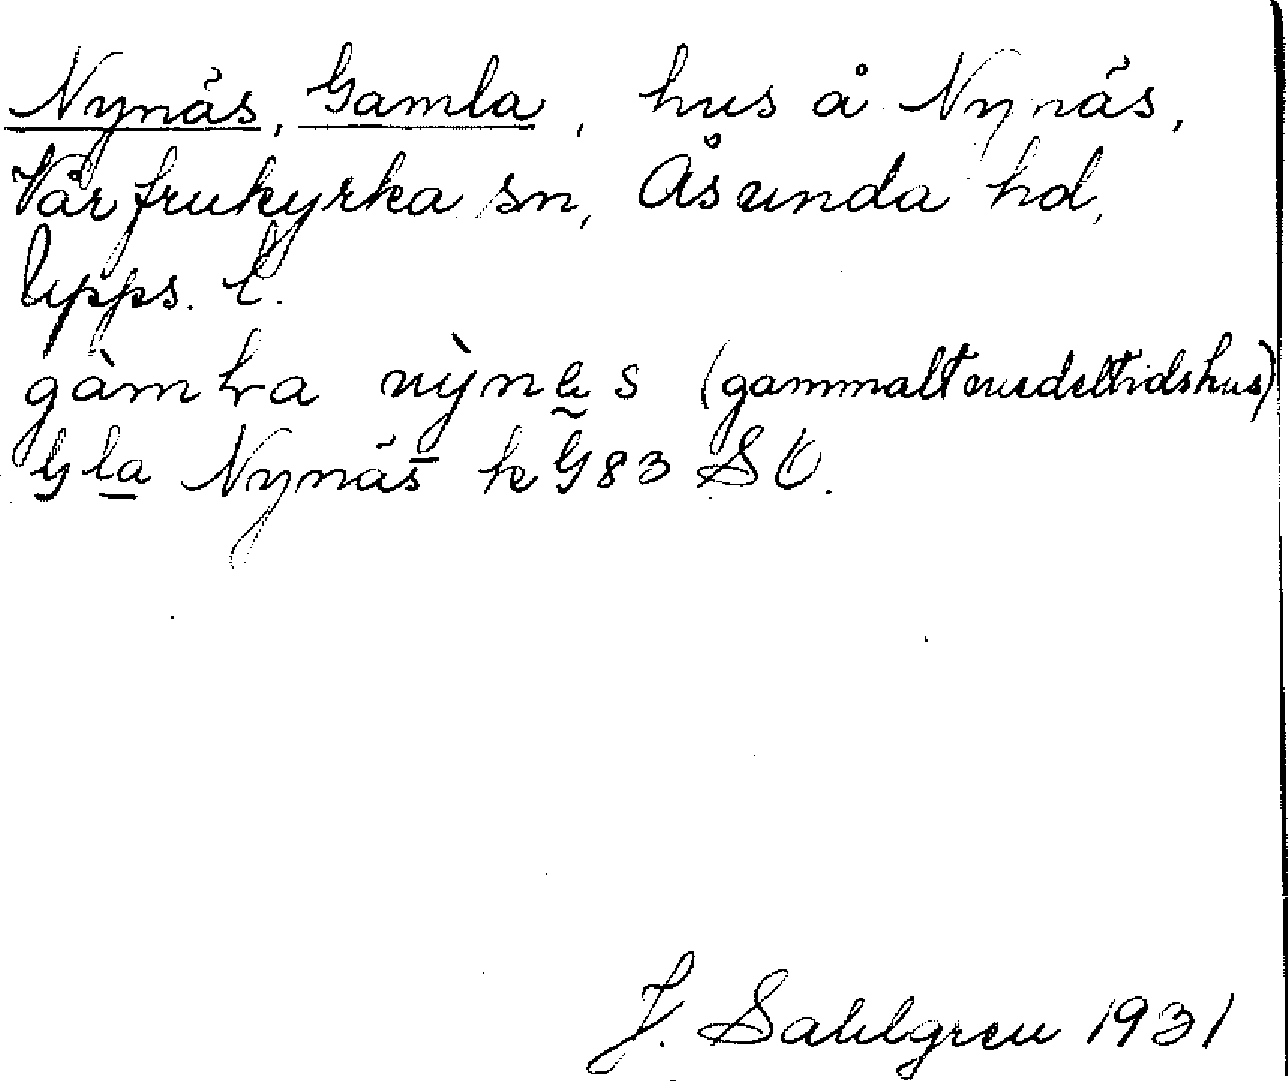 Nynäs, Gamla, hus å Nynäs,
Vårfrukyrka sn, Åsunda hd,
Upps. l.
gàmɫa nỳnes (gammalt medeltidshus)
Gla Nynäs k G83 SO.
J. Sahlgren 1931